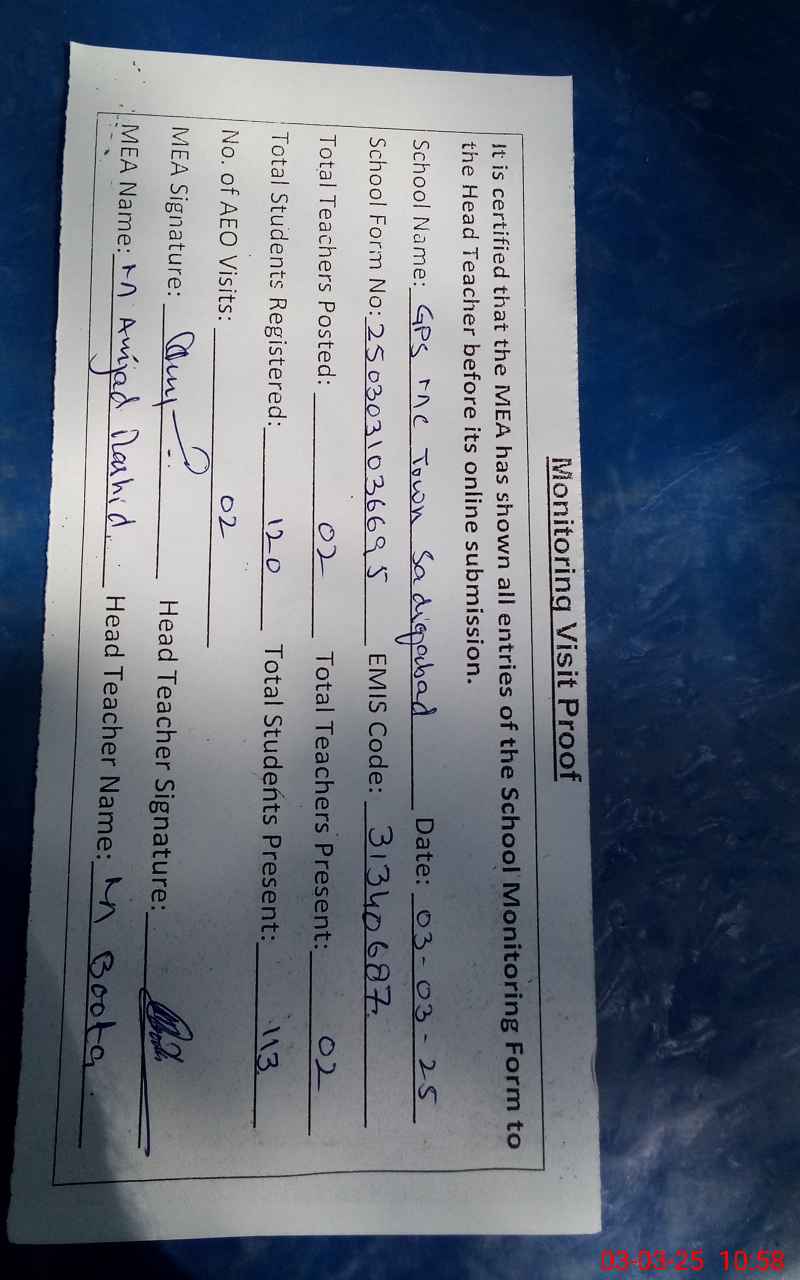 Monitoring Visit Proof
It is certified that the MEA has shown all entries of the School Monitoring Form to
the Head Teacher before its online submission.
School Name: GPS MC Town Sadiqabad Date: 03-03-25
School Form No: 2503031036695 EMIS Code: 31340687
Total Teachers Posted: 02 Total Teachers Present: 02
Total Students Registered: 120 Total Students Present: 113
No. of AEO Visits: 02
MEA Signature: Head Teacher Signature:
MEA Name: M Amjad Rashid Head Teacher Name: M Boota
03-03-25 10:58